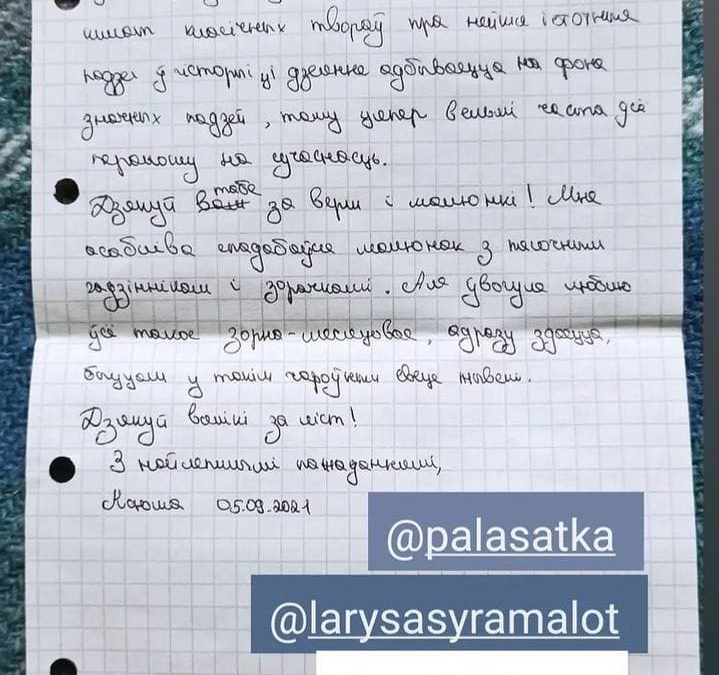 шмат класічных твораў пра нейкія істотныя
падзеі ў гісторыі ці дзеянне адбываецца на фоне
значных падзей, таму цяпер вельмі часта ўсё
пераношу на сучаснасць.
Дзякуй вам табе за вершы і малюнкі! Мне
асабліва спадабаўся малюнак з пясочным
гадзіннікам і зорачкамі. Але ўвогуле люблю
ўсё такое зорна-месяцовае, адразу здаецца,
быццам у такім чароўным свеце жывеш.
Дзякуй вялікі за ліст!
З найлепшымі пажаданнямі,
Ксюша 05.09.2021
@palasatka
@larysasyramalot